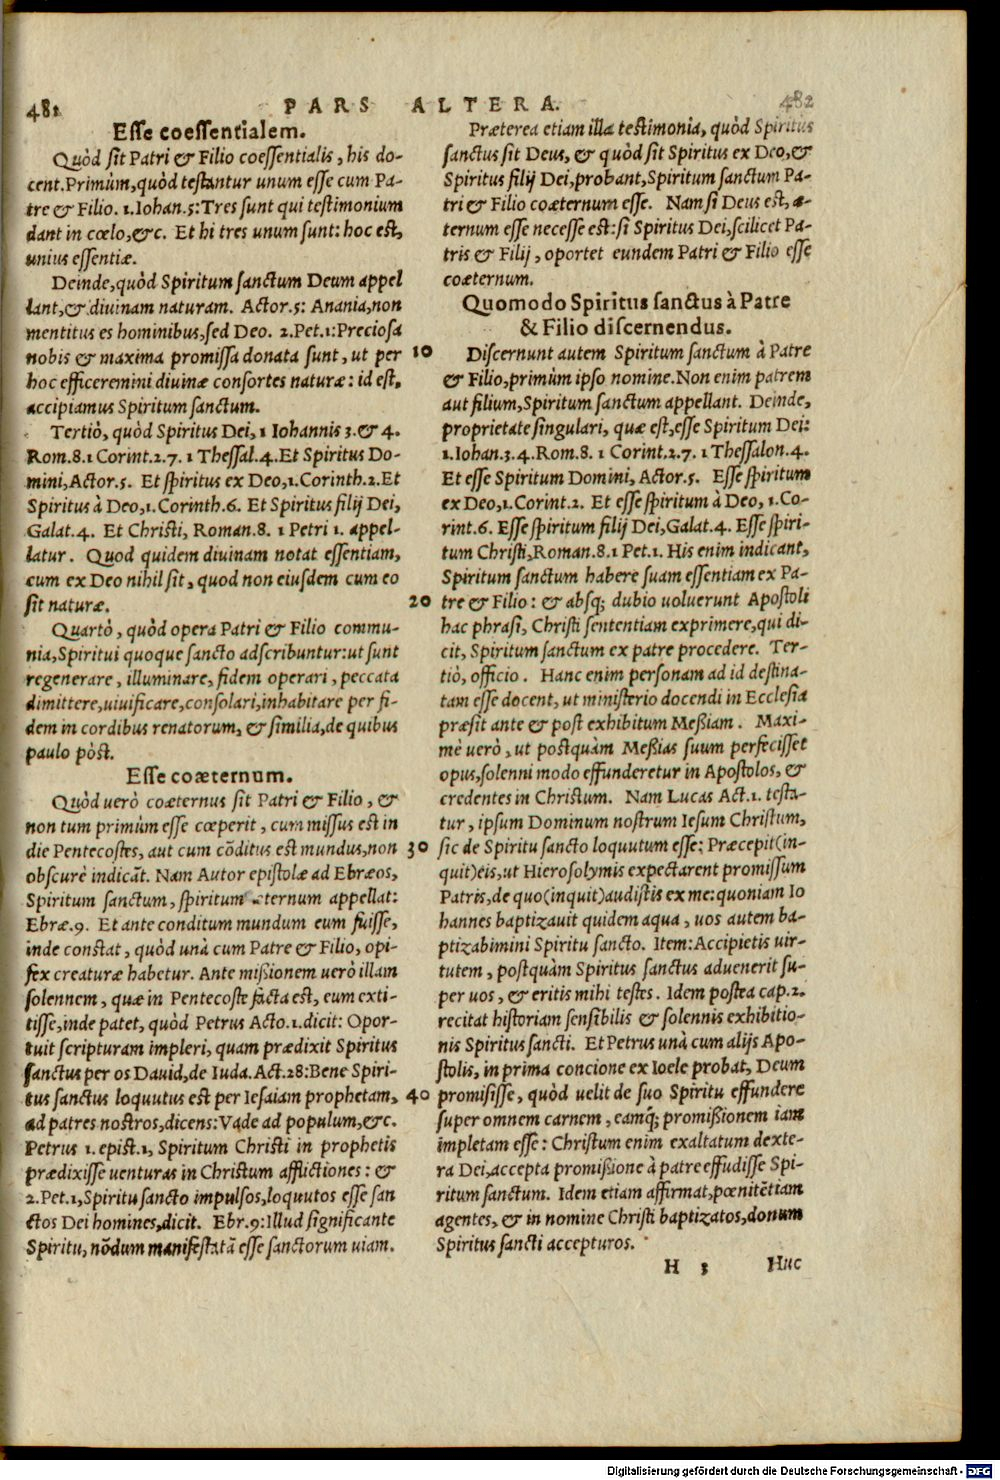 481 PARS ALTERA. 482
Esse coessentialem.
Quòd sit Patri & Filio coessentialis, his do-
cent. Primùm, quòd testantur unum esse cum Pa-
tre & Filio. 1. Iohan. 5: Tres sunt qui testimonium
dant in cœlo, &c. Et hi tres unum sunt: hoc est,
unius essentiæ.
Deinde, quòd Spiritum sanctum Deum appel
lant, & diuinam naturam. Actor. 5: Anania, non
mentitus es hominibus, sed Deo. 2. Pet. 1: Preciosa
nobis & maxima promissa donata sunt, ut per
hoc efficeremini diuinæ consortes naturæ: id est,
accipiamus Spiritum sanctum.
Tertiò, quòd Spiritus Dei, 1 Iohannis 3. & 4.
Rom. 8. 1 Corint. 2. 7. 1 Thessal. 4. Et Spiritus Do-
mini, Actor. 5. Et spiritus ex Deo, 1. Corinth. 2. Et
Spiritus à Deo, 1. Corinth. 6. Et Spiritus filij Dei,
Galat. 4. Et Christi, Roman. 8. 1 Petri 1. appel-
latur. Quod quidem diuinam notat essentiam,
cum ex Deo nihil sit, quod non eiusdem cum eo
sit naturæ.
Quartò, quòd opera Patri & Filio commu-
nia, Spiritui quoque sancto adscribuntur: ut sunt
regenerare, illuminare, fidem operari, peccata
dimittere, uiuificare, consolari, inhabitare per fi-
dem in cordibus renatorum, & similia, de quibus
paulo pòst.
Esse coæternum.
Quòd uerò coæternus sit Patri & Filio, &
non tum primùm esse cœperit, cum missus est in
die Pentecostes, aut cum cõditus est mundus, non
obscurè indicãt. Nam Autor epistolæ ad Ebræos,
Spiritum sanctum, spiritum æternum appellat:
Ebræ. 9. Et ante conditum mundum eum fuisse,
inde constat, quòd unà cum Patre & Filio, opi-
fex creaturæ habetur. Ante missionem uerò illam
solennem, quæ in Pentecoste facta est, eum exti-
tisse, inde patet, quòd Petrus Acto. 1. dicit: Opor-
tuit scripturam impleri, quam prædixit Spiritus
sanctus per os Dauid, de Iuda. Act. 28: Bene Spiri-
tus sanctus loquutus est per Iesaiam prophetam,
ad patres nostros, dicens: Vade ad populum, &c.
Petrus 1. epist. 1, Spiritum Christi in prophetis
prædixisse venturas in Christum afflictiones: &
2. Pet. 1, Spiritu sancto impulsos, loquutos esse san
ctos Dei homines, dicit. Ebr. 9: Illud significante
Spiritu, nõdum manifestatã esse sanctorum uiam.
Præterea etiam illa testimonia, quòd Spiritus
sanctus sit Deus, & quòd sit Spiritus ex Deo, &
Spiritus filij Dei, probant, Spiritum sanctum Pa-
tri & Filio coæternum esse. Nam si Deus est, æ-
ternum esse necesse est: si Spiritus Dei, scilicet Pa-
tris & Filij, oportet eundem Patri & Filio esse
coæternum.
Quomodo Spiritus sanctus à Patre
& Filio discernendus.
10 Discernunt autem Spiritum sanctum à Patre
& Filio, primùm ipso nomine. Non enim patrem
aut filium, Spiritum sanctum appellant. Deinde,
proprietate singulari, quæ est, esse Spiritum Dei:
1. Iohan. 3. 4. Rom. 8. 1 Corint. 2. 7. 1 Thessalon. 4.
Et esse Spiritum Domini, Actor. 5. Esse spiritum
ex Deo, 1. Corint. 2. Et esse spiritum à Deo, 1. Co-
rint. 6. Esse spiritum filij Dei, Galat. 4. Esse spiri-
tum Christi, Roman. 8. 1 Pet. 1. His enim indicant,
Spiritum sanctum habere suam essentiam ex Pa-
20 tre & Filio: & absq; dubio uoluerunt Apostoli
hac phrasi, Christi sententiam exprimere, qui di-
cit, Spiritum sanctum ex patre procedere. Ter-
tiò, officio. Hanc enim personam ad id destina-
tam esse docent, ut ministerio docendi in Ecclesia
præsit ante & post exhibitum Messiam. Maxi-
mè uerò, ut postquàm Messias suum perfecisset
opus, solenni modo effunderetur in Apostolos, &
credentes in Christum. Nam Lucas Act. 1. testa-
tur, ipsum Dominum nostrum Iesum Christum,
30 sic de Spiritu sancto loquutum esse: Præcepit (in-
quit) eis, ut Hierosolymis expectarent promissum
Patris, de quo (inquit) audistis ex me: quoniam Io
hannes baptizauit quidem aqua, uos autem ba-
ptizabimini Spiritu sancto. Item: Accipietis uir-
tutem, postquàm Spiritus sanctus aduenerit su-
per uos, & eritis mihi testes. Idem postea cap. 2.
recitat historiam sensibilis & solennis exhibitio-
nis Spiritus sancti. Et Petrus unà cum alijs Apo-
stolis, in prima concione ex Ioele probat, Deum
40 promisisse, quòd uelit de suo Spiritu effundere
super omnem carnem, eamq; promissionem iam
impletam esse: Christum enim exaltatum dexte-
ra Dei, accepta promissione à patre effudisse Spi-
ritum sanctum. Idem etiam affirmat, pœnitẽtiam
agentes, & in nomine Christi baptizatos, donum
Spiritus sancti accepturos.
H 3 Huc
Digitalisierung gefördert durch die Deutsche Forschungsgemeinschaft - DFG